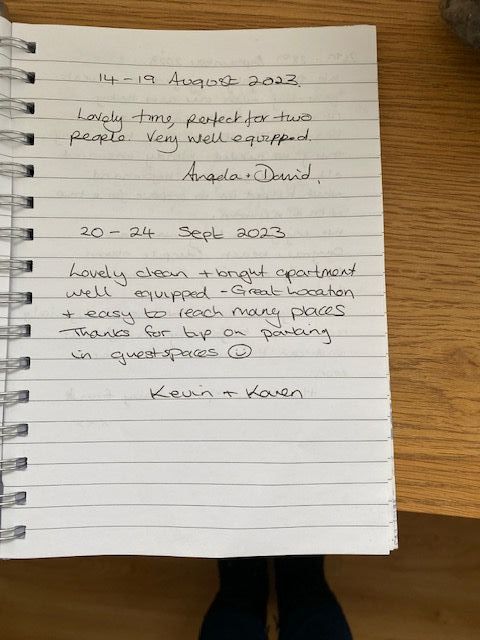 14-19 August 2023.
Lovely time, perfect for two
people. Very well equipped.
Angela + David.
20-24 Sept 2023
Lovely clean + bright apartment
well equipped - Great Location
+ easy to reach many places
Thanks for tip on parking
in guest spaces ☺
Kevin + Karen